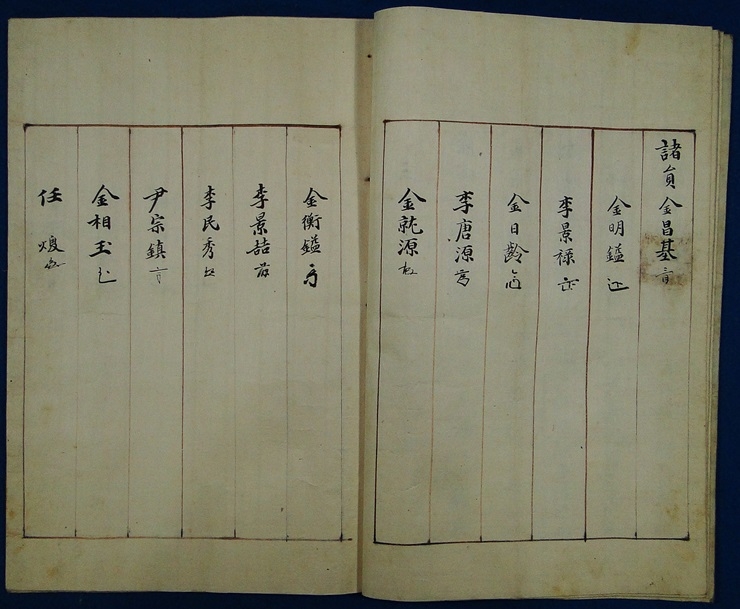 諸員金昌基
金明鎰
李景祿
金日齡
李唐源
金就源
金衡鎰
李景喆
李民秀
尹宗鎭
金相玉
任